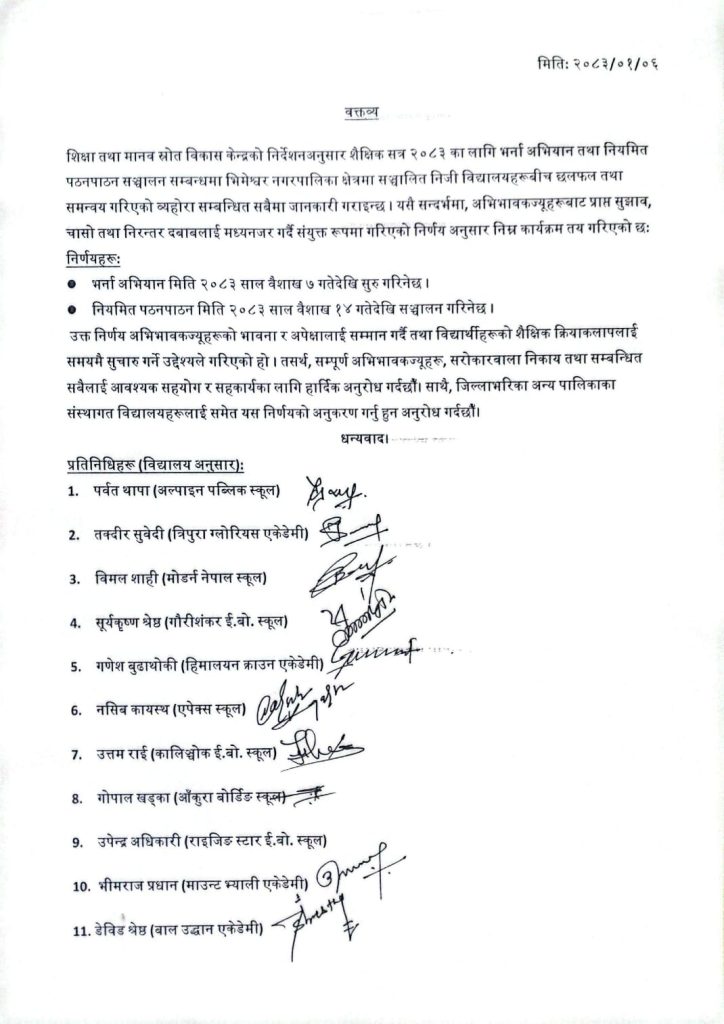 मिति: २०८३/०१/०६
वक्तव्य
शिक्षा तथा मानव स्रोत विकास केन्द्रको निर्देशनअनुसार शैक्षिक सत्र २०८३ का लागि भर्ना अभियान तथा नियमित
पठनपाठन सञ्चालन सम्बन्धमा भिमेश्वर नगरपालिका क्षेत्रमा सञ्चालित निजी विद्यालयहरूबीच छलफल तथा
समन्वय गरिएको व्यहोरा सम्बन्धित सबैमा जानकारी गराइन्छ । यसै सन्दर्भमा, अभिभावकज्यूहरूबाट प्राप्त सुझाव,
चासो तथा निरन्तर दबाबलाई मध्यनजर गर्दै संयुक्त रूपमा गरिएको निर्णय अनुसार निम्न कार्यक्रम तय गरिएको छ:
निर्णयहरू:
● भर्ना अभियान मिति २०८३ साल वैशाख ७ गतेदेखि सुरु गरिनेछ ।
● नियमित पठनपाठन मिति २०८३ साल वैशाख १४ गतेदेखि सञ्चालन गरिनेछ ।
उक्त निर्णय अभिभावकज्यूहरूको भावना र अपेक्षालाई सम्मान गर्दै तथा विद्यार्थीहरूको शैक्षिक क्रियाकलापलाई
समयमै सुचारु गर्ने उद्देश्यले गरिएको हो । तसर्थ, सम्पूर्ण अभिभावकज्यूहरू, सरोकारवाला निकाय तथा सम्बन्धित
सबैलाई आवश्यक सहयोग र सहकार्यका लागि हार्दिक अनुरोध गर्दछौं। साथै, जिल्लाभरिका अन्य पालिकाका
संस्थागत विद्यालयहरूलाई समेत यस निर्णयको अनुकरण गर्नु हुन अनुरोध गर्दछौं।
धन्यवाद।
प्रतिनिधिहरू (विद्यालय अनुसार):
1. पर्वत थापा (अल्पाइन पब्लिक स्कूल)
2. तक्दीर सुवेदी (त्रिपुरा ग्लोरियस एकेडेमी)
3. विमल शाही (मोडर्न नेपाल स्कूल)
4. सूर्यकृष्ण श्रेष्ठ (गौरीशंकर ई.बो. स्कूल)
5. गणेश बुढाथोकी (हिमालयन क्राउन एकेडेमी)
6. नसिब कायस्थ (एपेक्स स्कूल)
7. उत्तम राई (कालिञ्चोक ई.बो. स्कूल)
8. गोपाल खड्का (आँकुरा बोर्डिङ स्कूल)
9. उपेन्द्र अधिकारी (राइजिङ स्टार ई.बो. स्कूल)
10. भीमराज प्रधान (माउन्ट भ्याली एकेडेमी)
11. डेविड श्रेष्ठ (बाल उद्धान एकेडेमी)